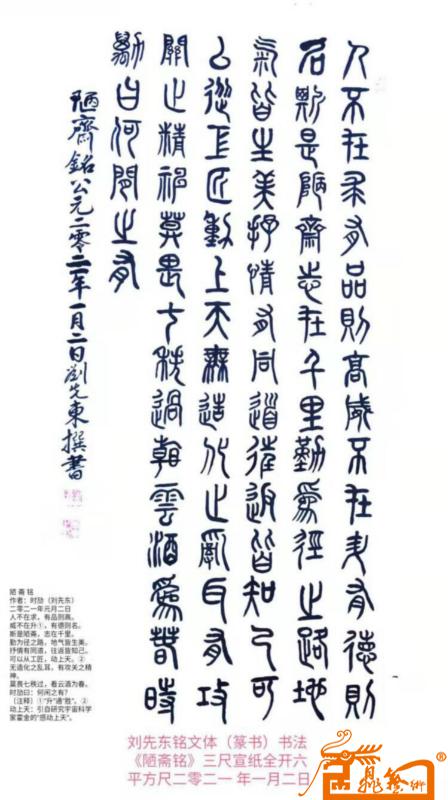 人不在求有品則高威不在升有德則
名斯是陋齋志在千里勤為徑之路地
氣皆生美抒情有同道往返皆知己可
以從工匠動上天無造化之亂耳有攻
關之精神莫畏七秩過看雲酒為春時
劼曰何閒之有
陋齋銘公元二零二一年一月二日劉先東撰書
陋 斋 铭
作者：时劼（刘先东）
二零二一年元月二日
人不在求，有品则高。
威不在升①，有德则名。
斯是陋斋，志在千里。
勤为径之路，地气皆生美。
抒情有同道，往返皆知己。
可以从工匠，动上天。②
无造化之乱耳，有攻关之精
神。
莫畏七秩过，看云酒为春。
时劼曰：何闲之有？
〔注释〕①“升”通“胜”。②
动上天：引自研究宇宙科学
家霍金的“感动上天”。
刘先东铭文体（篆书）书法
《陋斋铭》三尺宣纸全开六
平方尺二零二一 年一月二日